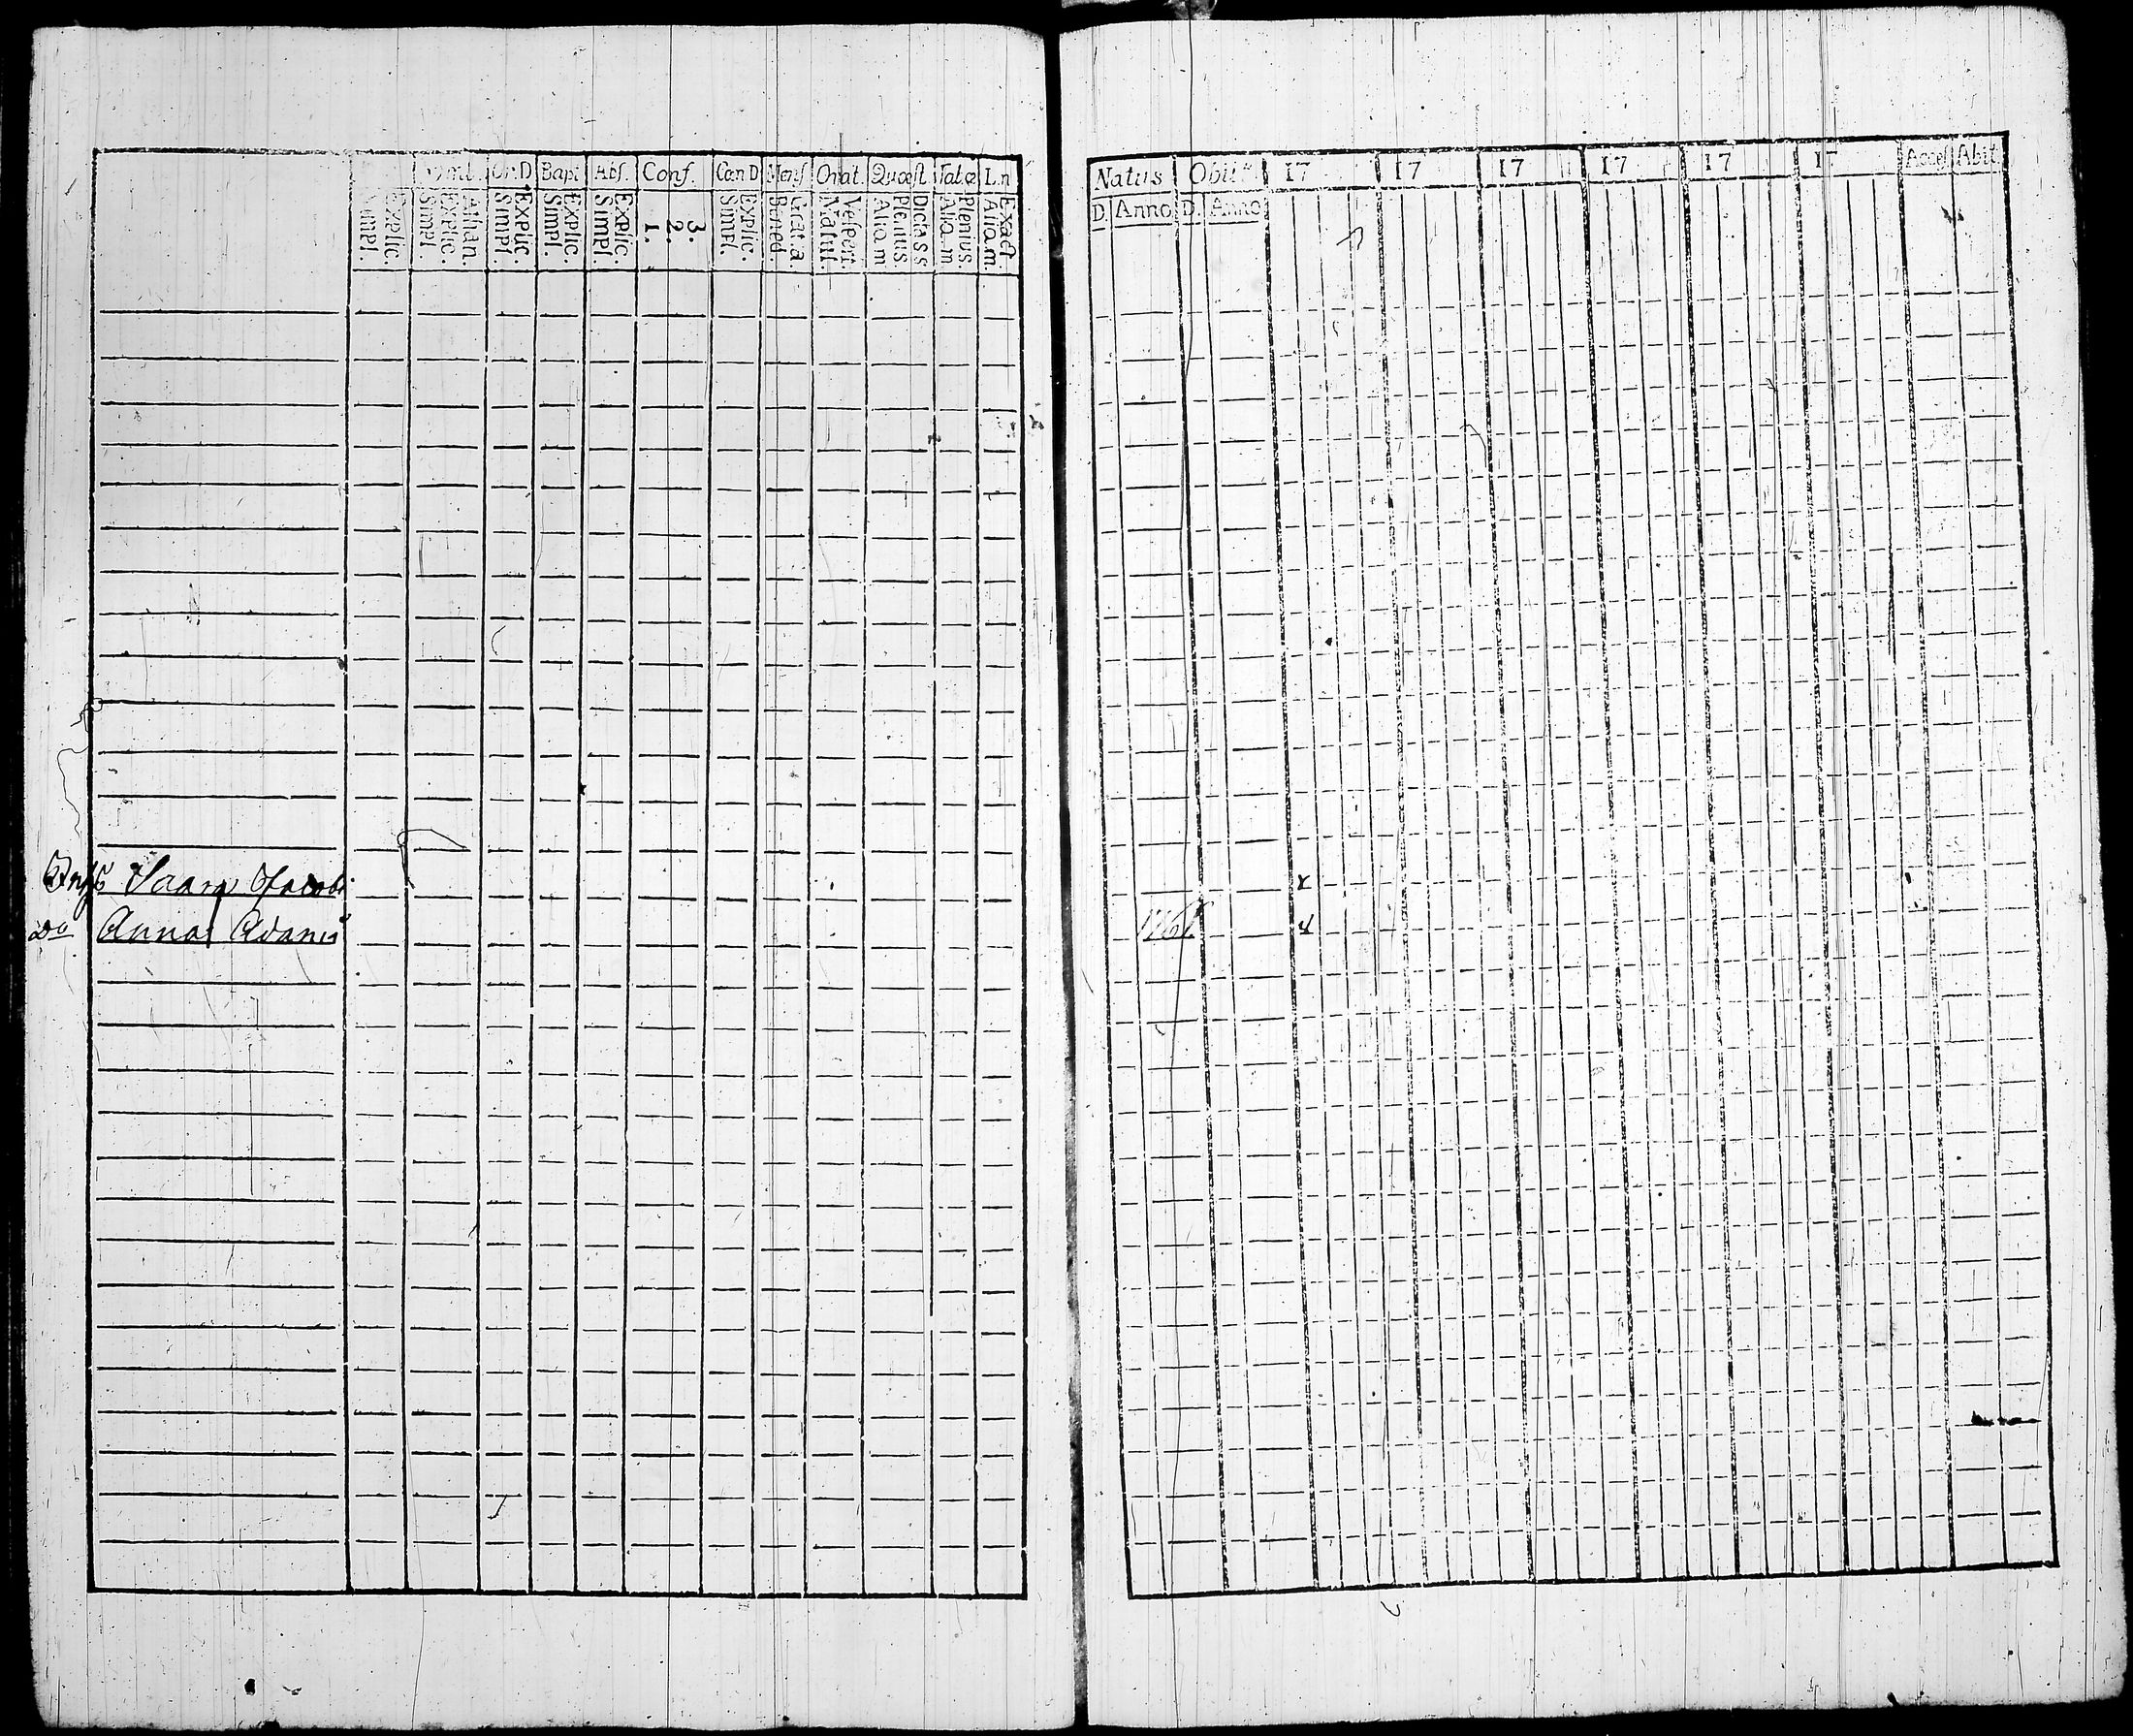 Symb. Or.D Bapt Abs. Conf. Cæn D Mens Orat. Quæst Tabæ L.n
Explic. Simpl.
Athan. Explic. Simpl.
Explic. Simpl.
Explic. Simpl.
Explic. Simpl.
3. 2. 1.
Explic. Simpl.
Grat.a. Bened.
Vesperi. Matut.
Dicta s s Plenius. Aliq. m
Plenius. Aliq. m
Exact Aliq. m.
Saara Jacobi
Do Anna Adams
Natus Obiit 17 17 17 17 17 17 Acces Abit
D. Anno D. Anno
x
x